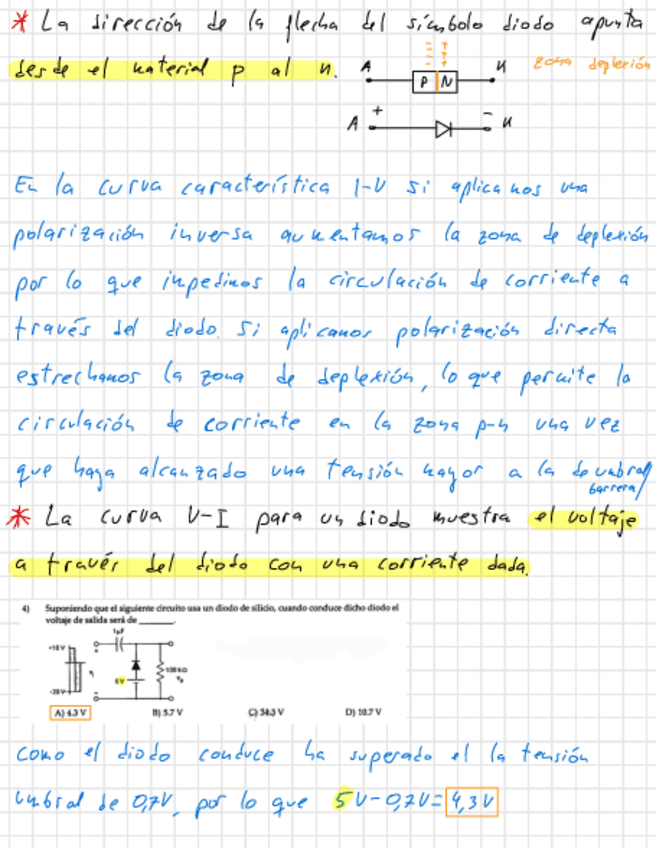 * La dirección de la flecha del símbolo diodo apunta
desde el material p al n.
A P N K zona deplexión
A + - K
En la curva característica I-V si aplicamos una
polarización inversa aumentamos la zona de deplexión
por lo que impedimos la circulación de corriente a
través del diodo. Si aplicamos polarización directa
estrechamos la zona de deplexión, lo que permite la
circulación de corriente en la zona p-n una vez
que haya alcanzado una tensión mayor a la de umbral/
barrera/
* La curva V-I para un diodo muestra el voltaje
a través del diodo con una corriente dada.
4) Suponiendo que el siguiente circuito usa un diodo de silicio, cuando conduce dicho diodo el
voltaje de salida será de ______.
1µF
+10 V
100 kΩ
5V
-20 V
A) 4.3 V B) 5.7 V C) 34.3 V D) 10.7 V
como el diodo conduce ha superado el la tensión
umbral de 0,7V, por lo que 5V-0,7V= 4,3V